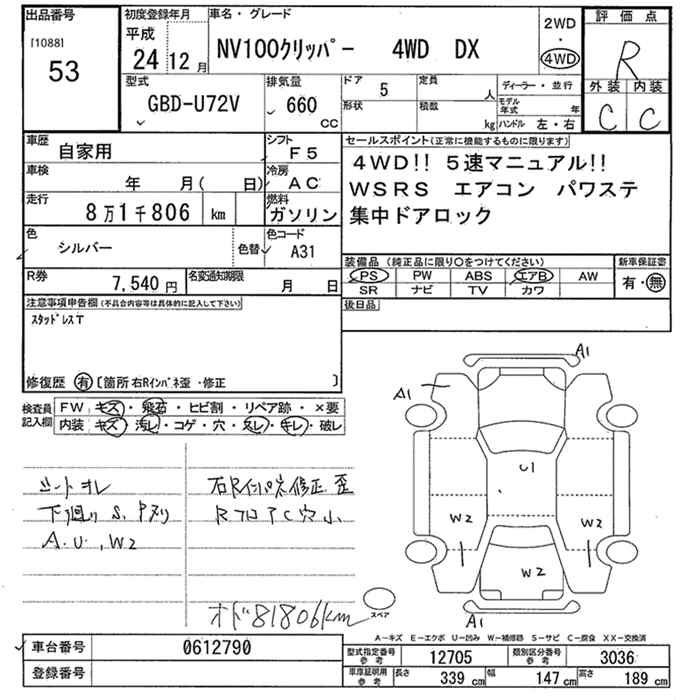 出品番号
[1088]
53
初度登録年月
平成
24 12 月
車名・グレード
NV100クリッパー 4WD DX
2WD
・
4WD
評価点
R
外装 内装
C C
型式
GBD-U72V
排気量
660
cc
ドア 5
形状
定員 人
積載 kg
ディーラー・並行
モデル年式 年
ハンドル 左・右
車歴
自家用
シフト
F5
車検
年 月( 日)
冷房
AC
走行
8万1千806 km
燃料
ガソリン
色
シルバー
色替
色コード
A31
R券
7,540 円
名変通知期限
月 日
セールスポイント(正常に機能するものに限ります)
4WD!! 5速マニュアル!!
WSRS エアコン パワステ
集中ドアロック
装備品 (純正品に限り○をつけてください)
PS PW ABS エアB AW
SR ナビ TV カワ
新車保証書
有・無
後日品
注意事項申告欄(不具合内容等は具体的に記入して下さい)
スタッドレスT
修復歴 有 [箇所 右Rインパネ歪・修正 ]
検査員
記入欄
FW キズ・飛石・ヒビ割・リペア跡・×要
内装 キズ・汚レ・コゲ・穴・スレ・キレ・破レ
シートヨレ
下廻り S、P有り
A.U.,W2
右Rインパネ修正 歪
RフロアC穴小
オド81806km
A1
A1
U1
W2
W2
W2
A1
スペア
A-キズ E-エクボ U-凹み W-補修跡 S-サビ C-腐食 XX-交換済
車台番号
0612790
登録番号
型式指定番号
参考
12705
類別区分番号
参考
3036
車庫証明用
参考
長さ 339 cm 幅 147 cm 高さ 189 cm